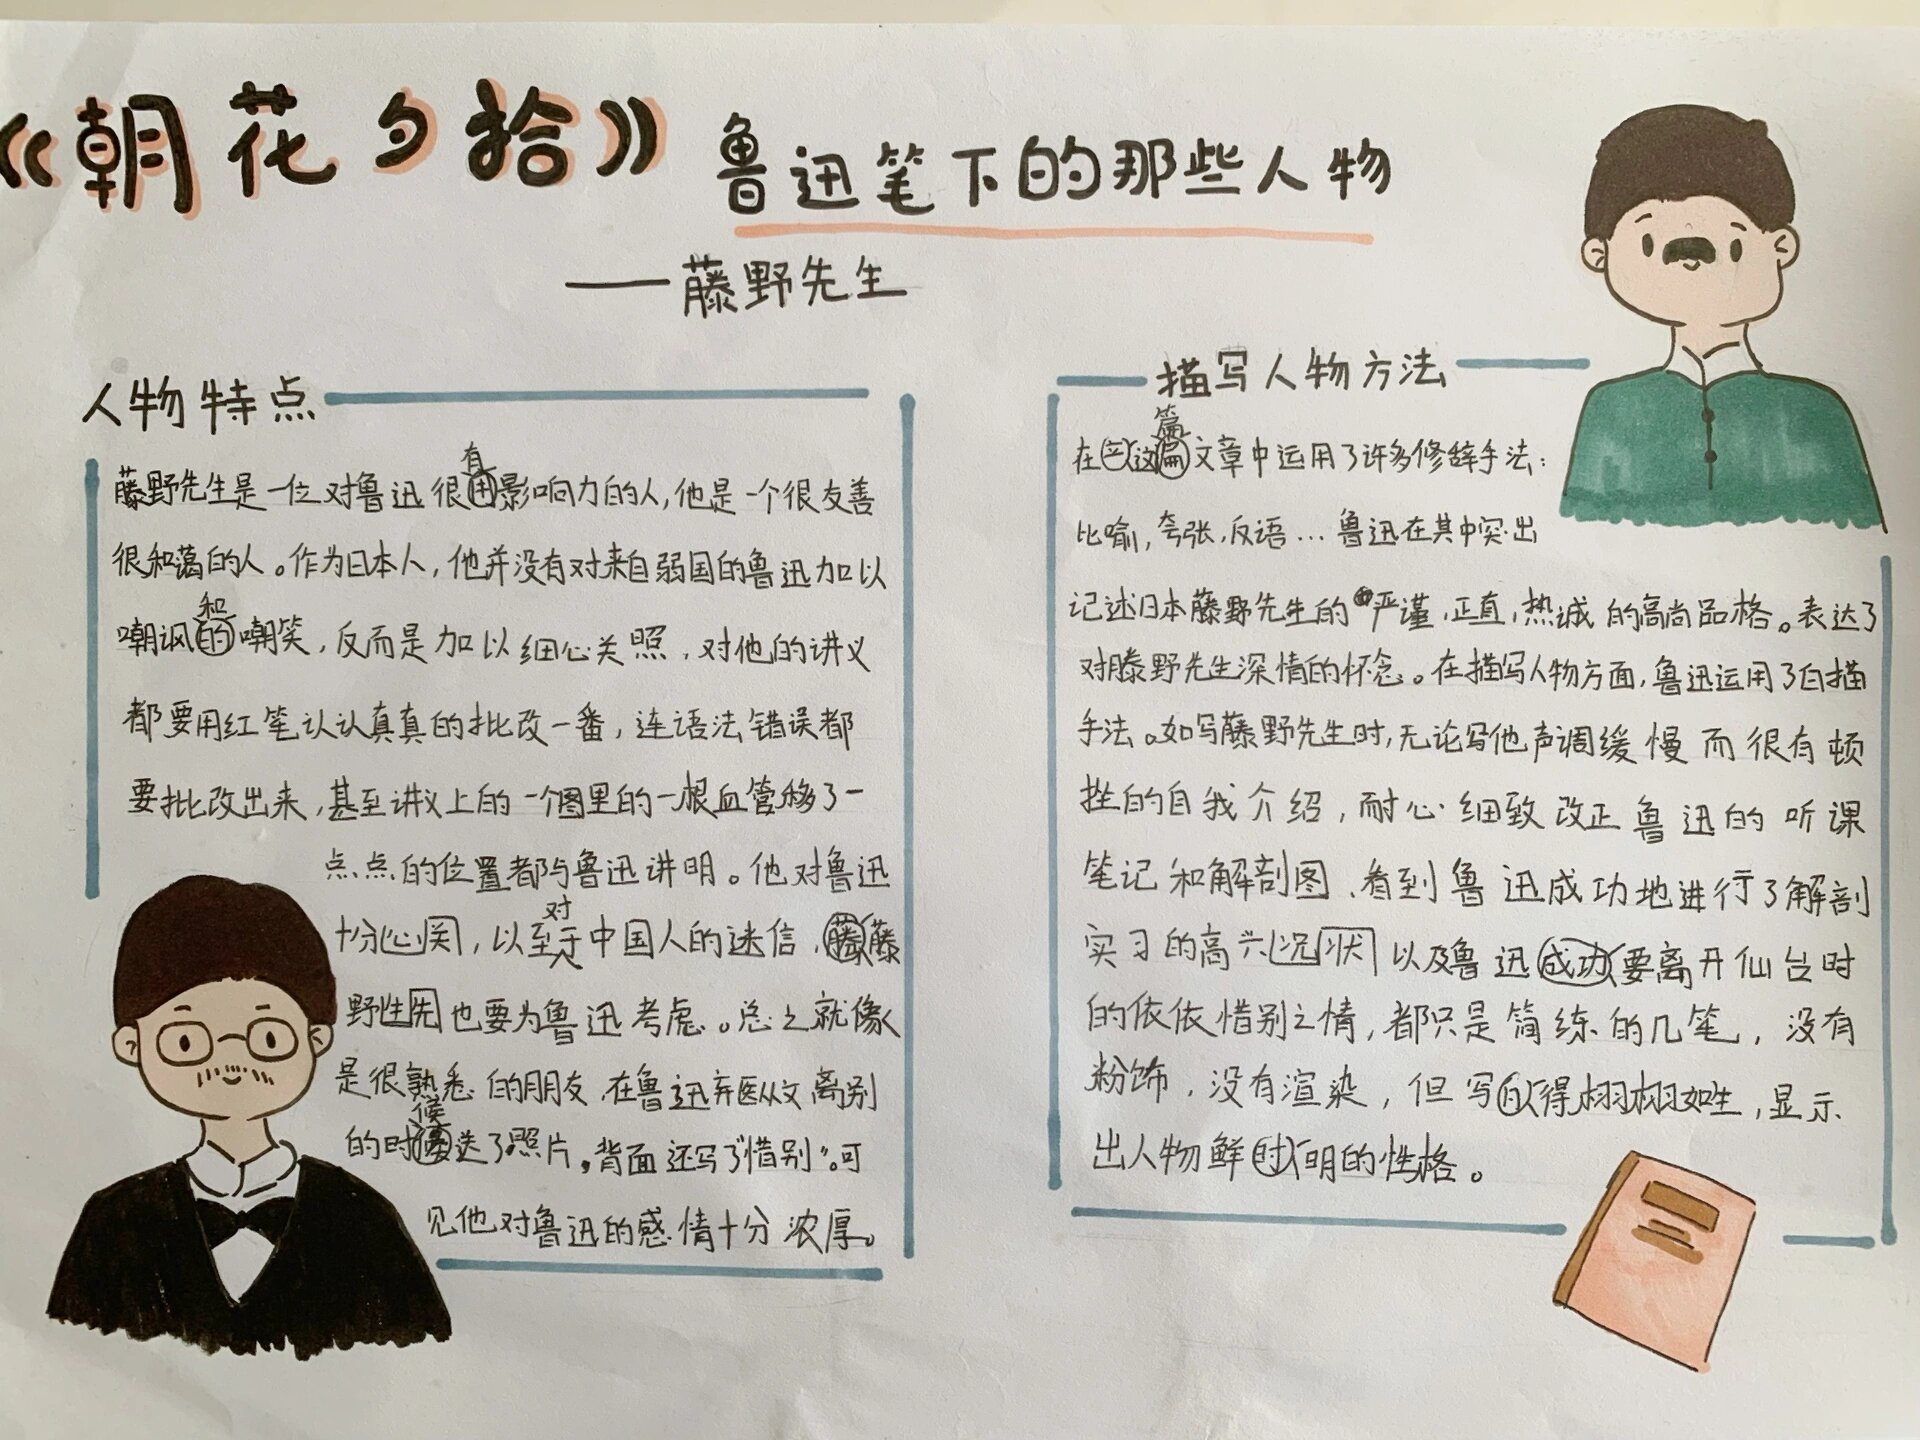 《朝花夕拾》
鲁迅笔下的那些人物
——藤野先生
人物特点
藤野先生是一位对鲁迅很有影响力的人,他是一个很友善
很和蔼的人。作为日本人,他并没有对来自弱国的鲁迅加以
嘲讽和嘲笑,反而是加以细心关照,对他的讲义
都要用红笔认认真真的批改一番,连语法错误都
要批改出来,甚至讲义上的一个图里的一根血管移了一
点点的位置都与鲁迅讲明。他对鲁迅
十分心关,以至对于中国人的迷信,藤
野生先也要为鲁迅考虑。总之就像
是很熟悉的朋友,在鲁迅弃医从文离别
的时候送了照片,背面还写了“惜别”。可
见他对鲁迅的感情十分浓厚。
描写人物方法
在这篇文章中运用了许多修辞手法:
比喻,夸张,反语…鲁迅在其中突出
记述日本藤野先生的严谨,正直,热诚的高尚品格。表达了
对藤野先生深情的怀念。在描写人物方面,鲁迅运用了白描
手法。如写藤野先生时,无论写他声调缓慢而很有顿
挫的自我介绍,耐心细致改正鲁迅的听课
笔记和解剖图、看到鲁迅成功地进行了解剖
实习的高兴况状以及鲁迅要离开仙台时
的依依惜别之情,都只是简练的几笔,没有
粉饰,没有渲染,但写得栩栩如生,显示
出人物鲜明的性格。